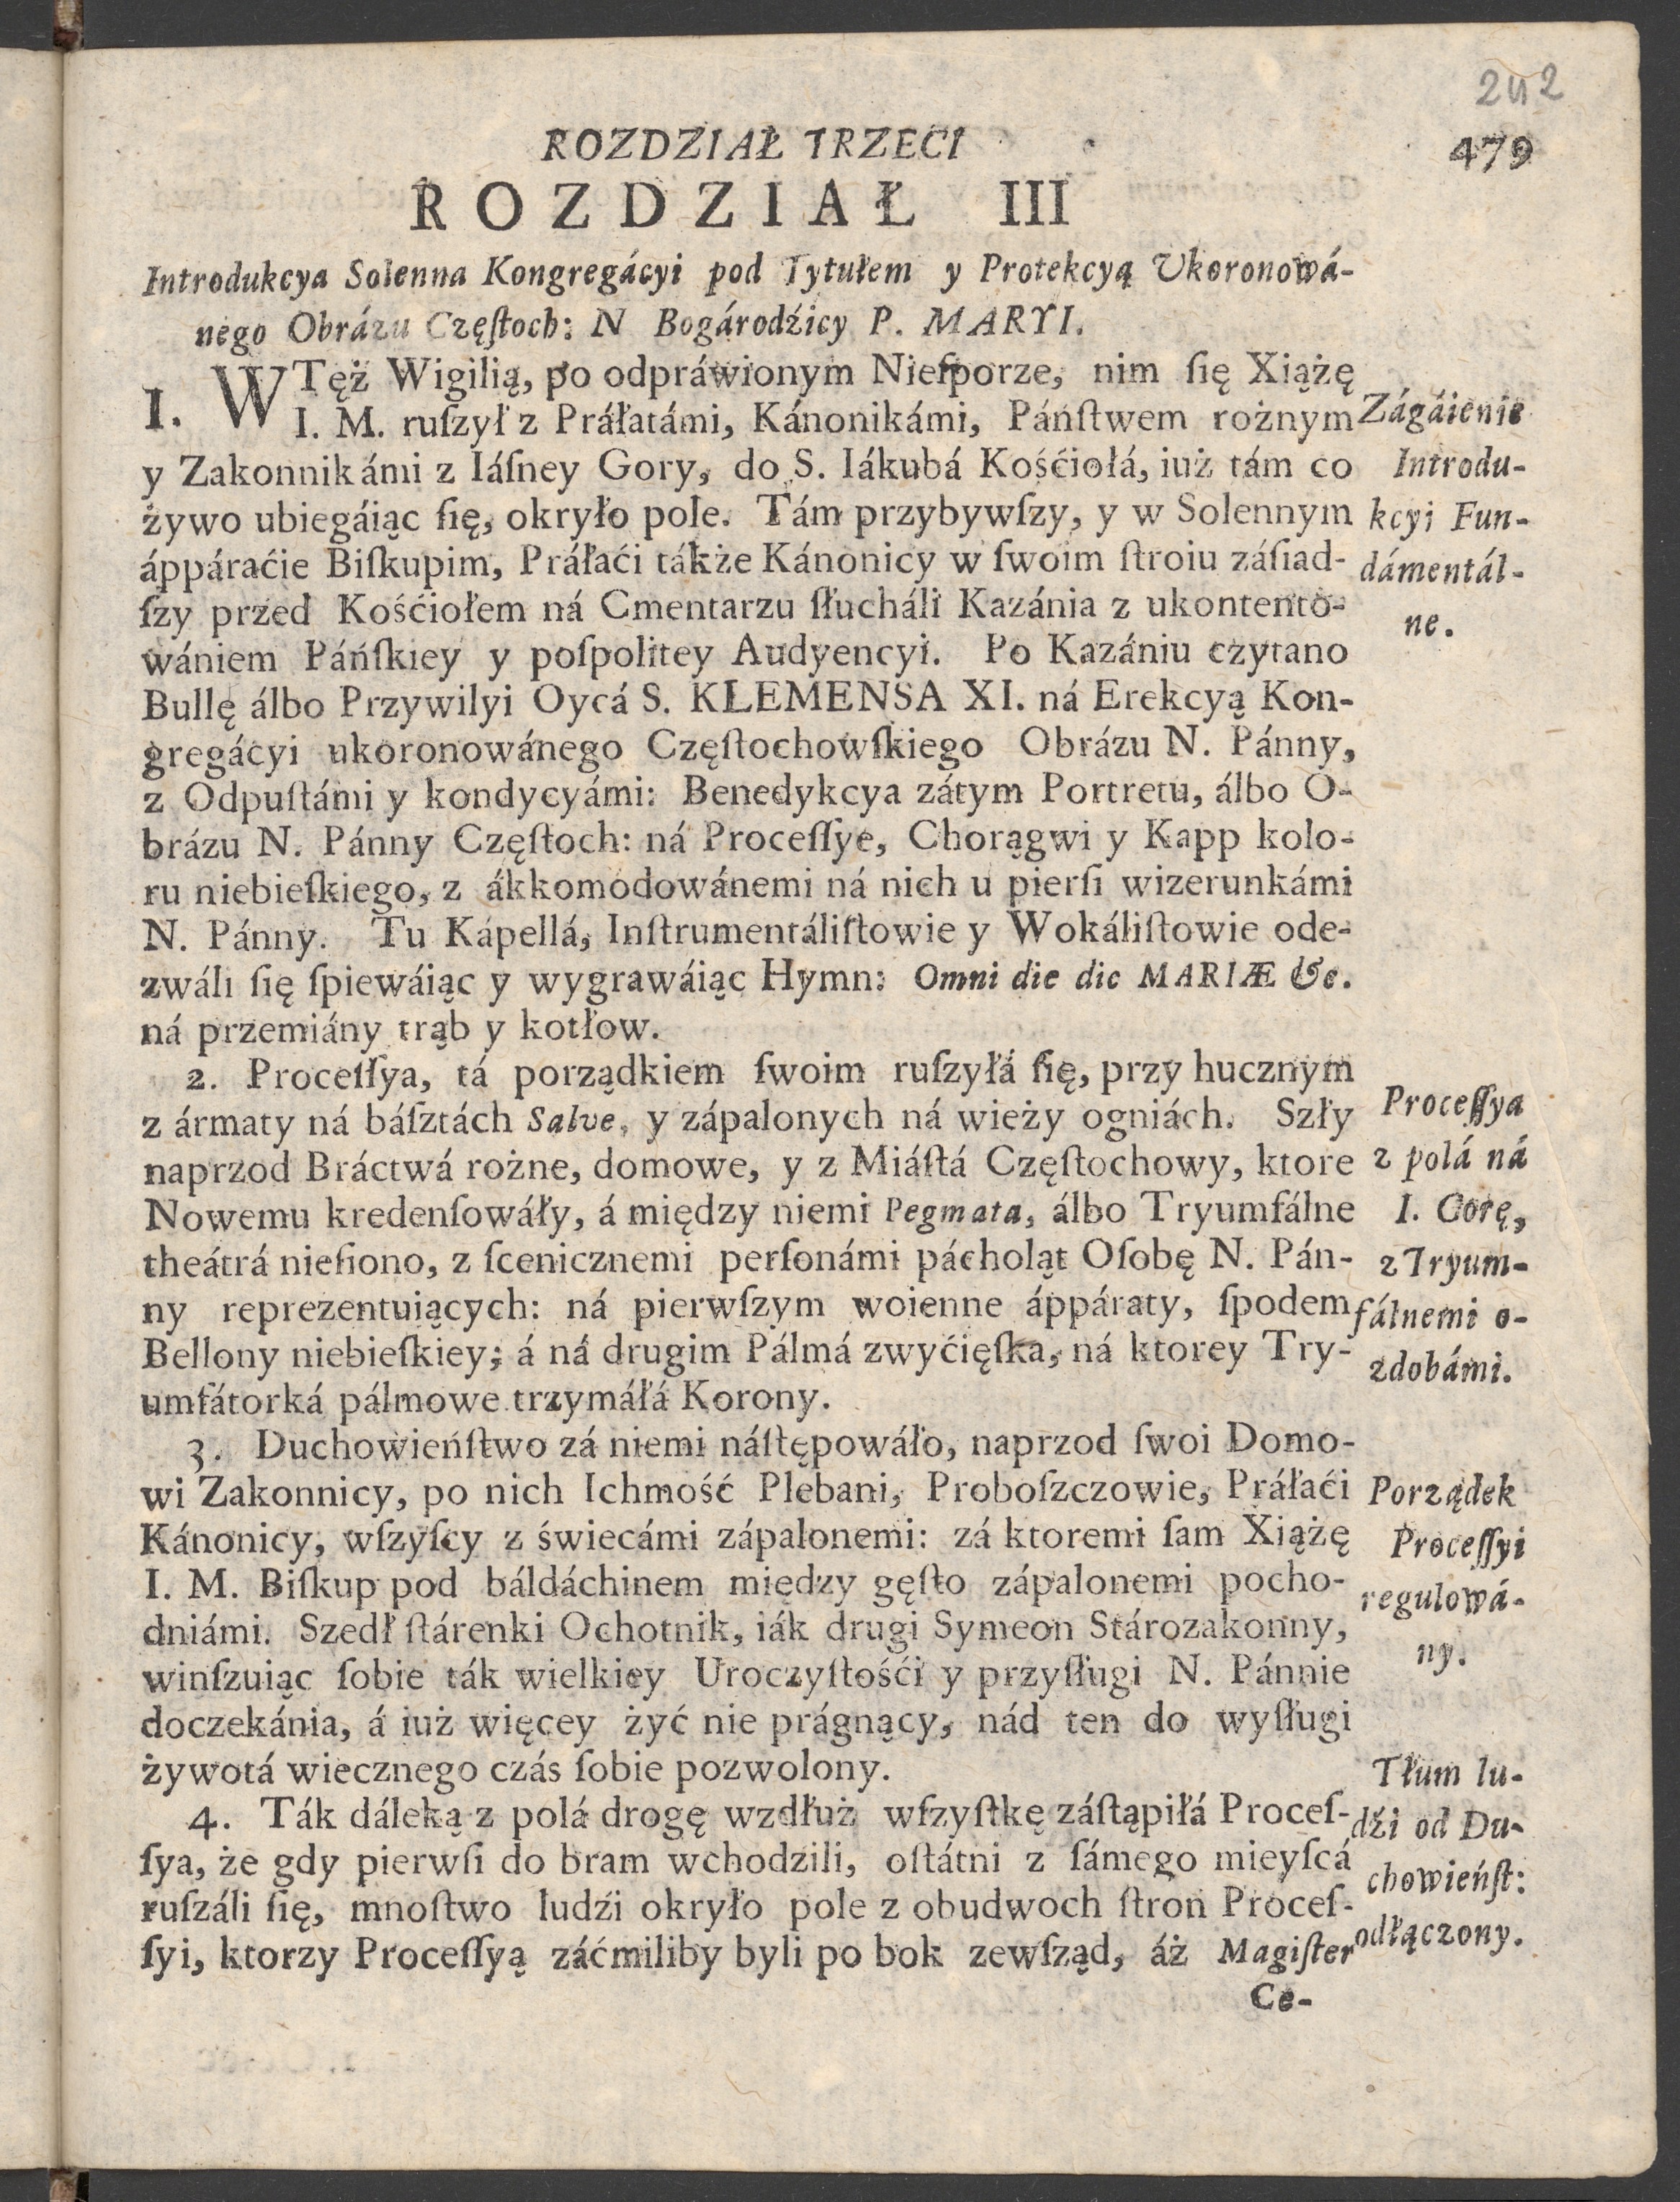 242
ROZDZIAŁ TRZECI
479
ROZDZIAŁ III
Introdukcya Solenna Kongregácyi pod Tytułem y Protekcyą Vkoronowá-
nego Obrázu Częſtoch: N Bogárodźicy P. MARYI.
I. W Tęż Wigilią, po odpráwionym Nieſporze, nim ſię Xiążę
I. M. ruſzył z Práłatámi, Kánonikámi, Páńſtwem rożnym
y Zakonnikámi z Iáſney Gory, do S. Iákubá Kośćiołá, iuż tám co
żywo ubiegáiąc ſię, okryło pole. Tám przybywſzy, y w Solennym
áppáraćie Biſkupim, Práłaći tákże Kánonicy w ſwoim ſtroiu záſiad-
ſzy przed Kośćiołem ná Cmentarzu ſłucháli Kazánia z ukontento-
wániem Páńſkiey y poſpolitey Audyencyi. Po Kazániu czytano
Bullę álbo Przywilyi Oycá S. KLEMENSA XI. ná Erekcyą Kon-
gregácyi ukoronowánego Częſtochowſkiego Obrázu N. Pánny,
z Odpuſtámi y kondycyámi: Benedykcya zátym Portretu, álbo O-
brázu N. Pánny Częſtoch: ná Proceſſye, Chorągwi y Kapp kolo-
ru niebieſkiego, z ákkomodowánemi ná nich u pierſi wizerunkámi
N. Pánny. Tu Kápellá, Inſtrumentáliſtowie y Wokáliſtowie ode-
zwáli ſię ſpiewáiąc y wygrawáiąc Hymn: Omni die dic MARIÆ &c.
ná przemiány trąb y kotłow.
Zágáienie
Introdu-
kcyi Fun-
dámentál-
ne.
2. Proceſſya, tá porządkiem ſwoim ruſzyłá ſię, przy hucznym
z ármaty ná báſztách Salve, y zápalonych ná wieży ogniách. Szły
naprzod Bráctwá rożne, domowe, y z Miáſtá Częſtochowy, ktore
Nowemu kredenſowáły, á między niemi Pegmata, álbo Tryumfálne
theátrá nieſiono, z ſcenicznemi perſonámi pácholąt Oſobę N. Pán-
ny reprezentuiących: ná pierwſzym woienne áppáraty, ſpodem
Bellony niebieſkiey; á ná drugim Pálmá zwyćięſka, ná ktorey Try-
umfátorká pálmowe trzymáłá Korony.
Proceſſya
z polá ná
I. Gorę,
z Tryum-
fálnemi o-
zdobámi.
3. Duchowieńſtwo zá niemi náſtępowáło, naprzod ſwoi Domo-
wi Zakonnicy, po nich Ichmość Plebani, Proboſzczowie, Práłaći
Kánonicy, wſzyſcy z świecámi zápalonemi: zá ktoremi ſam Xiążę
I. M. Biſkup pod báldáchinem między gęſto zápalonemi pocho-
dniámi. Szedł ſtárenki Ochotnik, iák drugi Symeon Stározakonny,
winſzuiąc ſobie ták wielkiey Uroczyſtośći y przyſługi N. Pánnie
doczekánia, á iuż więcey żyć nie prágnący, nád ten do wyſługi
żywotá wiecznego czás ſobie pozwolony.
Porządek
Proceſſyi
regulowá-
ny.
4. Ták dáleką z polá drogę wzdłuż wſzyſtkę záſtąpiłá Proceſ-
ſya, że gdy pierwſi do bram wchodzili, oſtátni z ſámego mieyſcá
ruſzáli ſię, mnoſtwo ludźi okryło pole z obudwoch ſtron Proceſ-
ſyi, ktorzy Proceſſyą záćmiliby byli po bok zewſząd, áż Magiſter
Tłum lu-
dźi od Du-
chowieńſt:
odłączony.
Ce-